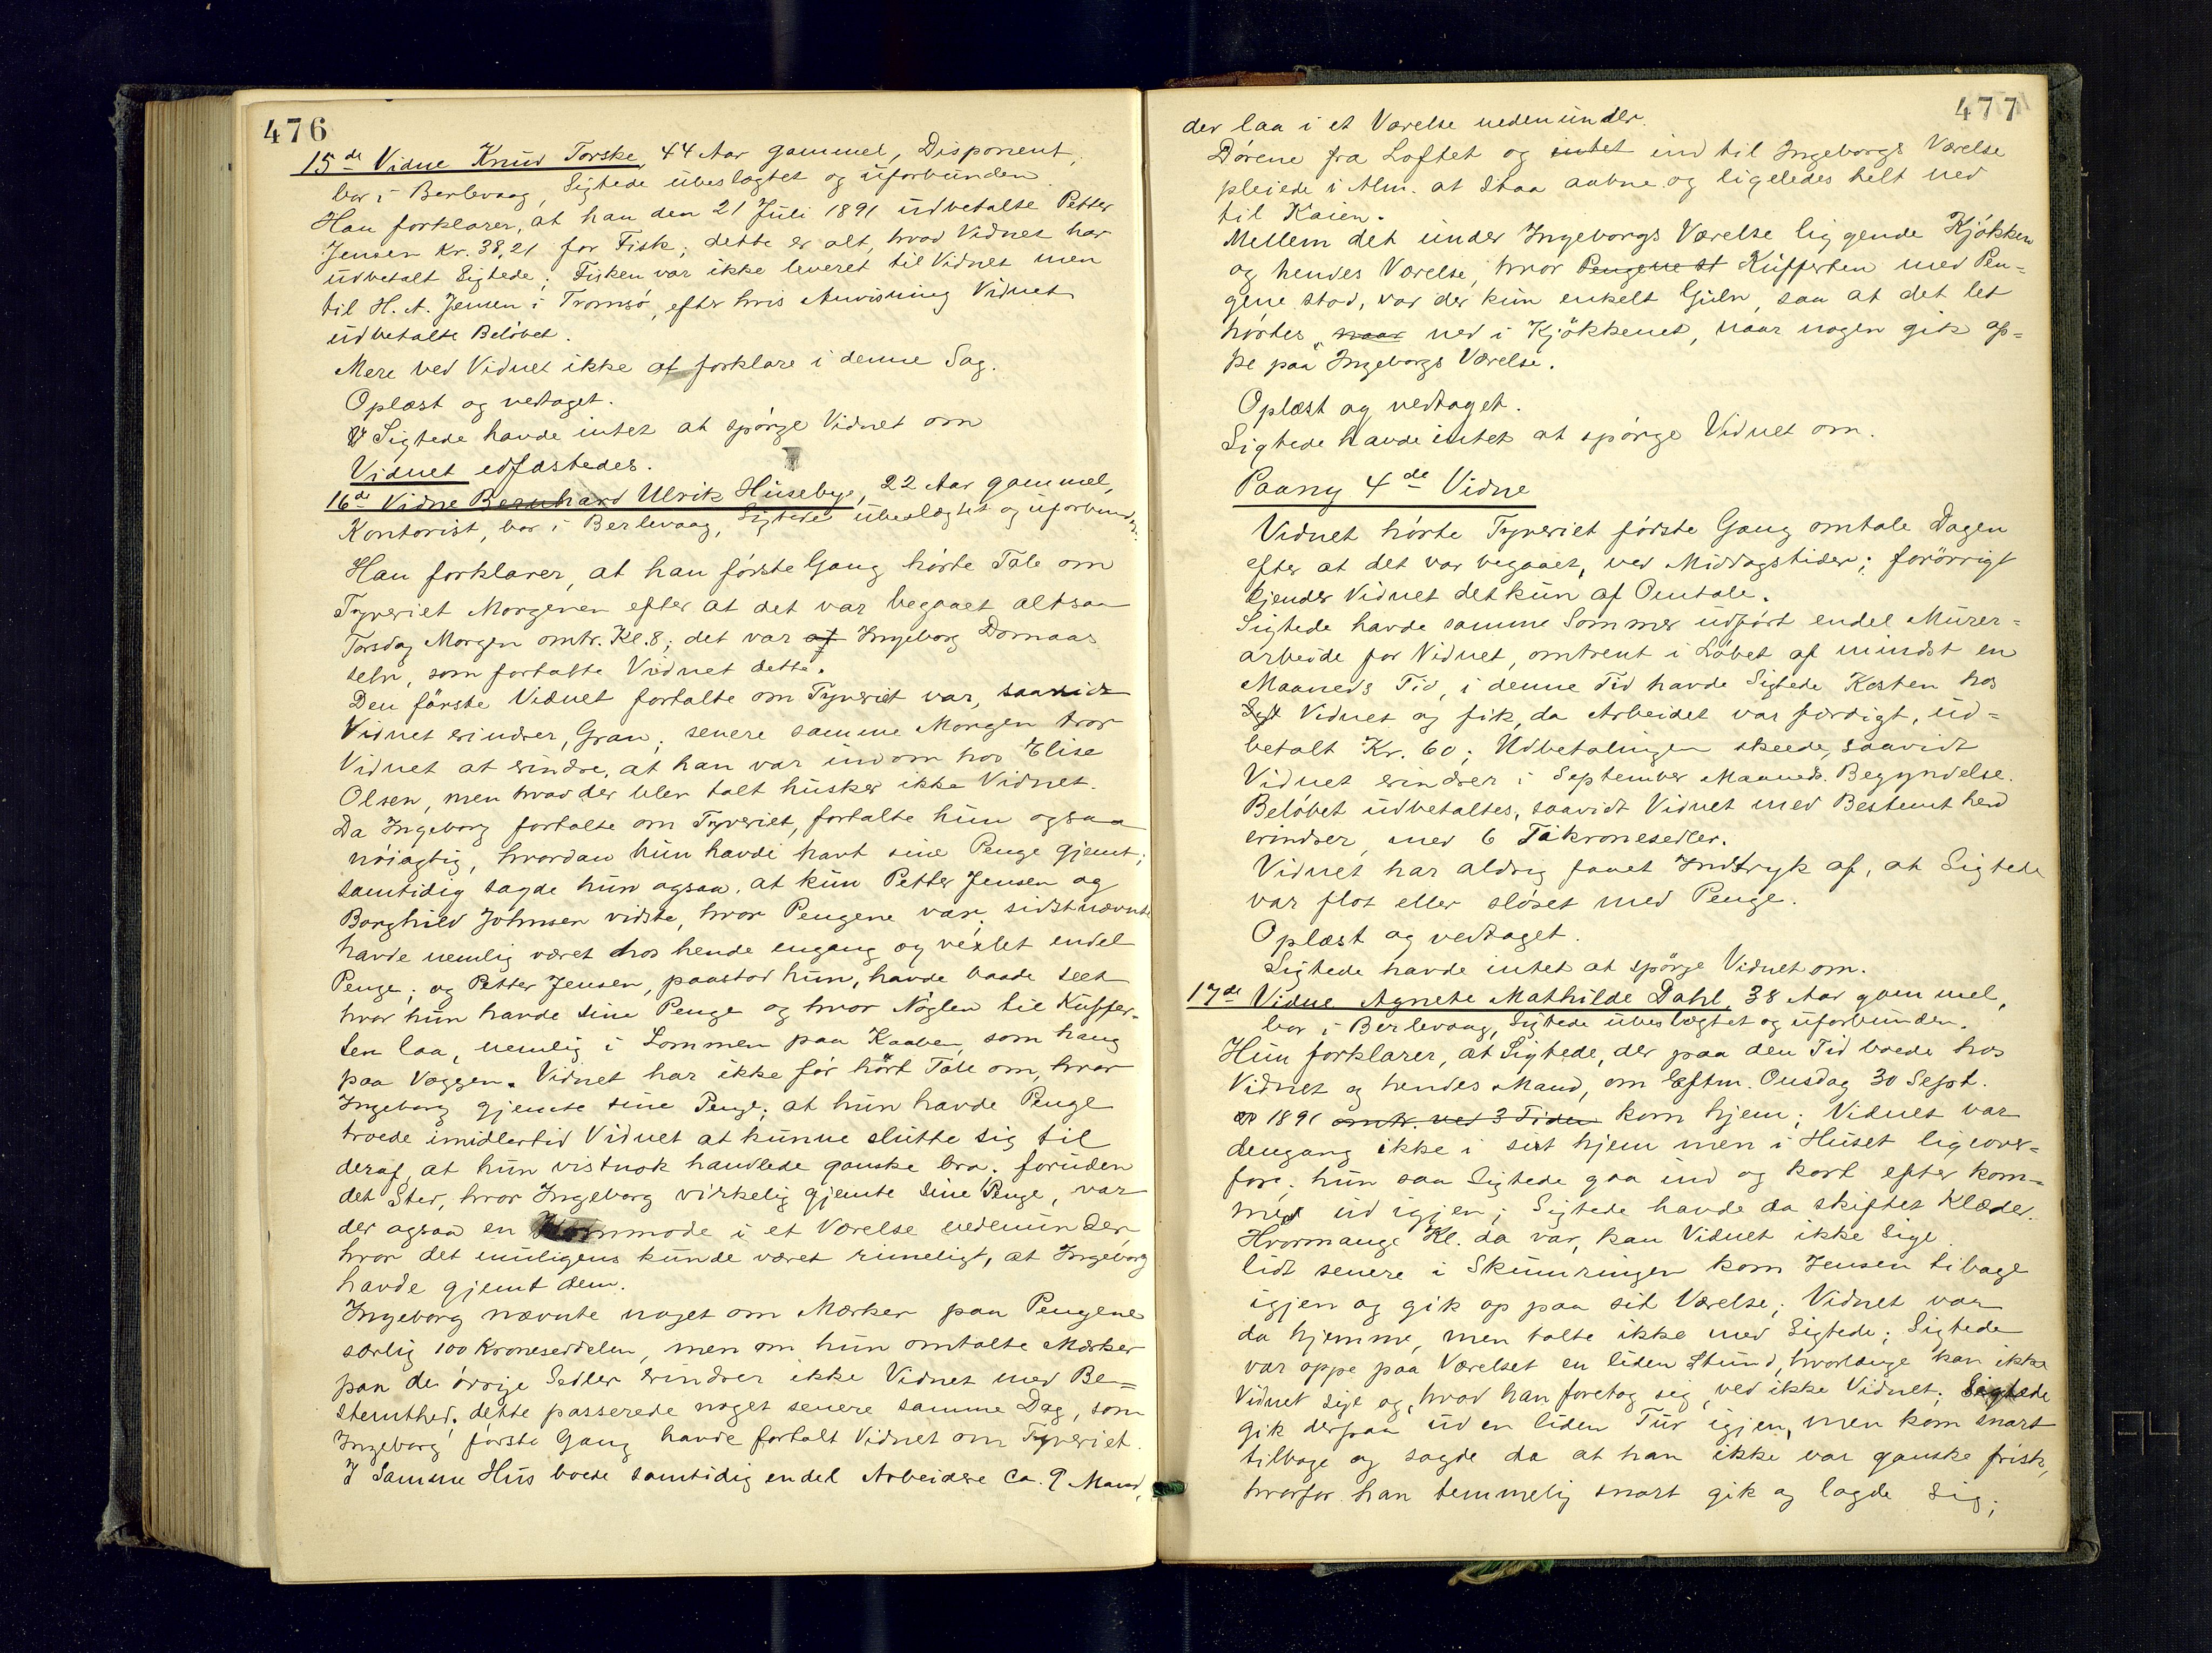 476
15de Vidne Knud Torske, 44 Aar gammel, Disponent,
bor i Berlevaag, Sigtede ubeslægtet og uforbunden
Han forklarer, at han den 21 Juli 1891 udbetalte Petter
Jensen Kr. 38,21 for Fisk; dette er alt, hvad Vidnet har
udbetalt Sigtede; Fisken var ikke leveret til Vidnet men
til H. A. Jensen i Tromsø, efter hvis Anvisning Vidnet
udbetalte Beløbet.
Mere ved Vidnet ikke at forklare i denne Sag.
Oplæst og vedtaget.
V Sigtede havde intet at spørge Vidnet om
Vidnet edfæstedes.
16de Vidne Bernhard Ulrik Husebye, 22 Aar gammel,
Kontorist, bor i Berlevaag, Sigtede ubeslægtet og uforbunden.
Han forklarer, at han første Gang hørte Tale om
Tyveriet Morgenen efter at det var begaaet altsaa
Torsdag Morgen omtr. Kl. 8; det var af Ingeborg Domaas
selv, som fortalte Vidnet dette.
Den første Vidnet fortalte om Tyveriet var, saavidt
Vidnet erindrer, Gran; senere samme Morgen tror
Vidnet at erindre, at han var indom hos Elise
Olsen, men hvad der blev talt husker ikke Vidnet.
Da Ingeborg fortalte om Tyveriet, fortalte hun ogsaa
nøiagtig, hvordan hun havde havt sine Penge gjemt;
samtidig sagde hun ogsaa, at kun Petter Jensen og
Borghild Johnsen vidste, hvor Pengene var; sidstnævnte
havde nemlig været hos hende engang og vexlet endel
Penge; og Petter Jensen, paastod hun, havde baade seet
hvor hun havde sine Penge og hvor Nøglen til Kuffer-
ten laa, nemlig i Lommen paa Kaaben, som hang
paa Væggen. Vidnet har ikke før hørt Tale om, hvor
Ingeborg gjemte sine Penge; at hun havde Penge
troede imidlertid Vidnet at kunne slutte sig til
deraf, at hun vistnok handlede ganske bra; foruden
det Sted, hvor Ingeborg virkelig gjemte sine Penge, var
der ogsaa en Kommode i et Værelse nedenunder,
hvor det muligens kunde været rimeligt, at Ingeborg
havde gjemt dem.
Ingeborg nævnte noget om Mærker paa Pengene
særlig 100 Kroneseddelen, men om hun omtalte Mærker
paa de øvrige Sedler erindrer ikke Vidnet med Be=
stemthed; dette passerede noget senere samme Dag, som
Ingeborg første Gang havde fortalt Vidnet om Tyveriet.
I Samme Hus boede samtidig endel Arbeidere ca. 9 Mand,
477
der laa i et Værelse nedenunder.
Dørene fra Loftet og intet ind til Ingeborgs Værelse
pleiede i Alm. at staa aabne og ligeledes helt ned
til Kaien.
Mellem det under Ingeborgs Værelse liggende Kjøkken
og hendes Værelse, hvor Pengene st Kufferten med Pen=
gene stod, var der kun enkelt Gulv, saa at det let
hørtes, naar ned i Kjøkkenet, naar nogen gik op=
pe paa Ingeborgs Værelse.
Oplæst og vedtaget.
Sigtede havde intet at spørge Vidnet om.
Paany 4de Vidne
Vidnet hørte Tyveriet første Gang omtale Dagen
efter at det var begaaet, ved Middagstider; forøvrigt
kjender Vidnet det kun af Omtale.
Sigtede havde samme Sommer udført endel Murer=
arbeide for Vidnet, omtrent i Løbet af mindst en
Maaneds Tid, i denne Tid havde Sigtede Kosten hos
Sigt Vidnet og fik, da Arbeidet var færdigt, ud=
betalt Kr. 60; Udbetalingen skeede, saavidt
Vidnet erindrer i September Maaneds Begyndelse.
Beløbet udbetaltes, saavidt Vidnet med Bestemthed
erindrer, med 6 Tikronesedler.
Vidnet har aldrig faaet Indtryk af, at Sigtede
var flot eller sløset med Penge.
Oplæst og vedtaget.
Sigtede havde intet at spørge Vidnet om.
17de Vidne Agnete Mathilde Dahl, 38 Aar gammel,
bor i Berlevaag, Sigtede ubeslægtet og uforbunden.
Hun forklarer, at Sigtede, der paa den Tid boede hos
Vidnet og hendes Mand, om Eftm. Onsdag 30 Sept.
1891 omtr. ved 3 Tiden kom hjem; Vidnet var
dengang ikke i sit hjem men i Huset ligeover=
for; hun saa Sigtede gaa ind og kort efter kom=
me ud igjen; Sigtede havde da skiftet Klæder.
Hvormange Kl. da var, kan Vidnet ikke sige.
lidt senere i Skumringen kom Jensen tilbage
igjen og gik op paa sit Værelse; Vidnet var
da hjemme, men talte ikke med Sigtede; Sigtede
var oppe paa Værelset en liden Stund, hvorlænge kan ikke
Vidnet sige og, hvad han foretog sig, ved ikke Vidnet; Sigtede
gik derpaa ud en liden Tur igjen, men kom snart
tilbage og sagde da at han ikke var ganske frisk,
hvorfor han temmelig snart gik og lagde sig;